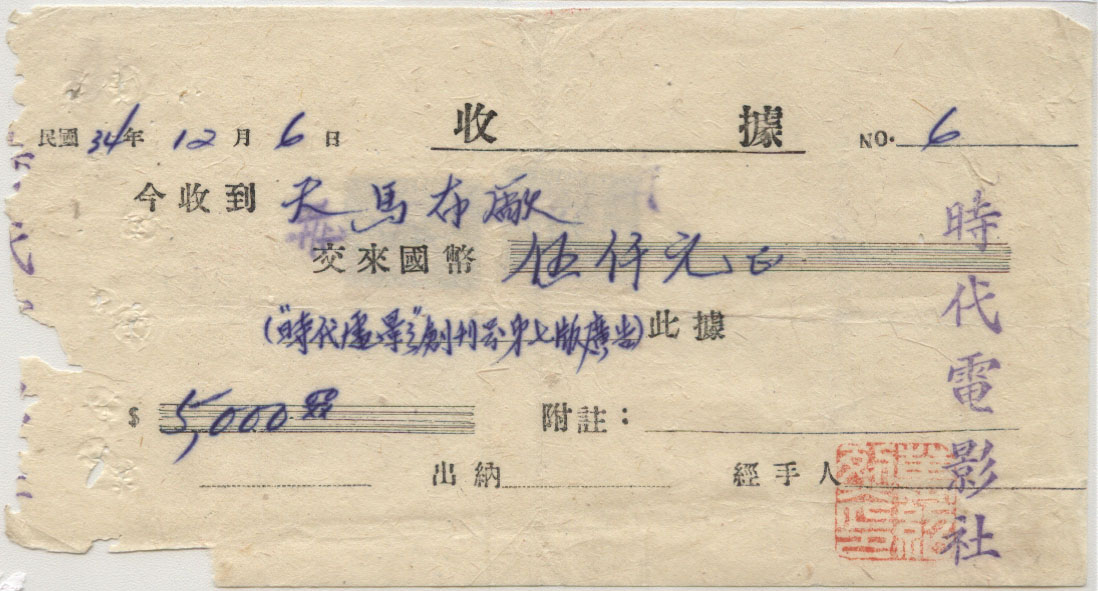 收據
民國34年12月6日 NO. 6
今收到 天馬布廠
交來國幣 伍仟元正
("時代電影"創刊号第七版廣告)此據
$ 5,000.00 附註：
出納 經手人
時代電影社